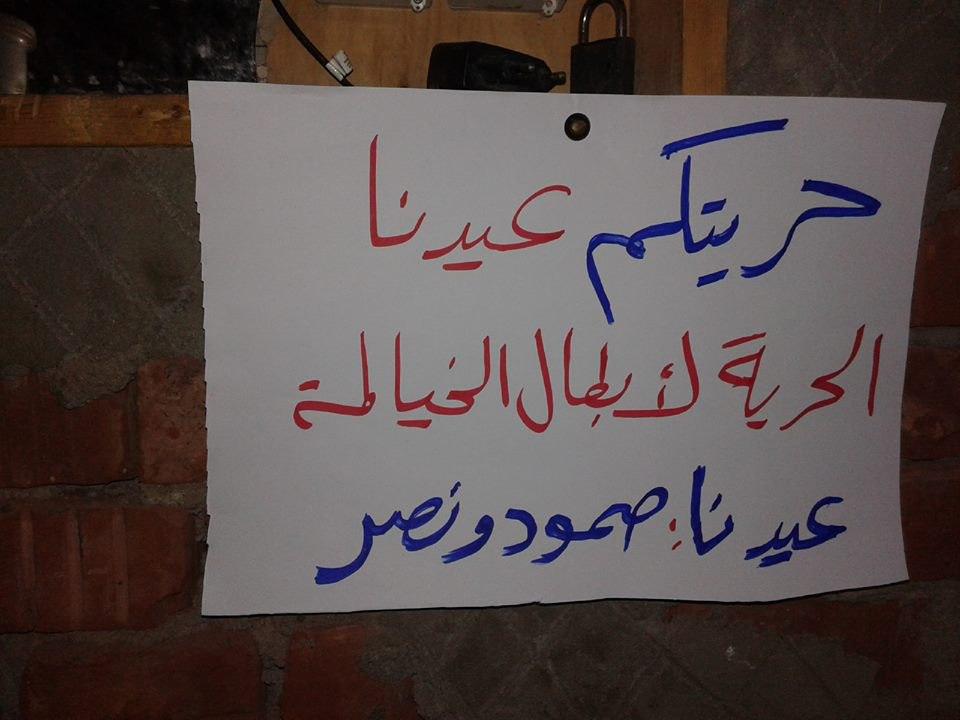 حريتكم عيدنا
الحرية لأبطال الخيالة
عيدنا: صمود ونصر